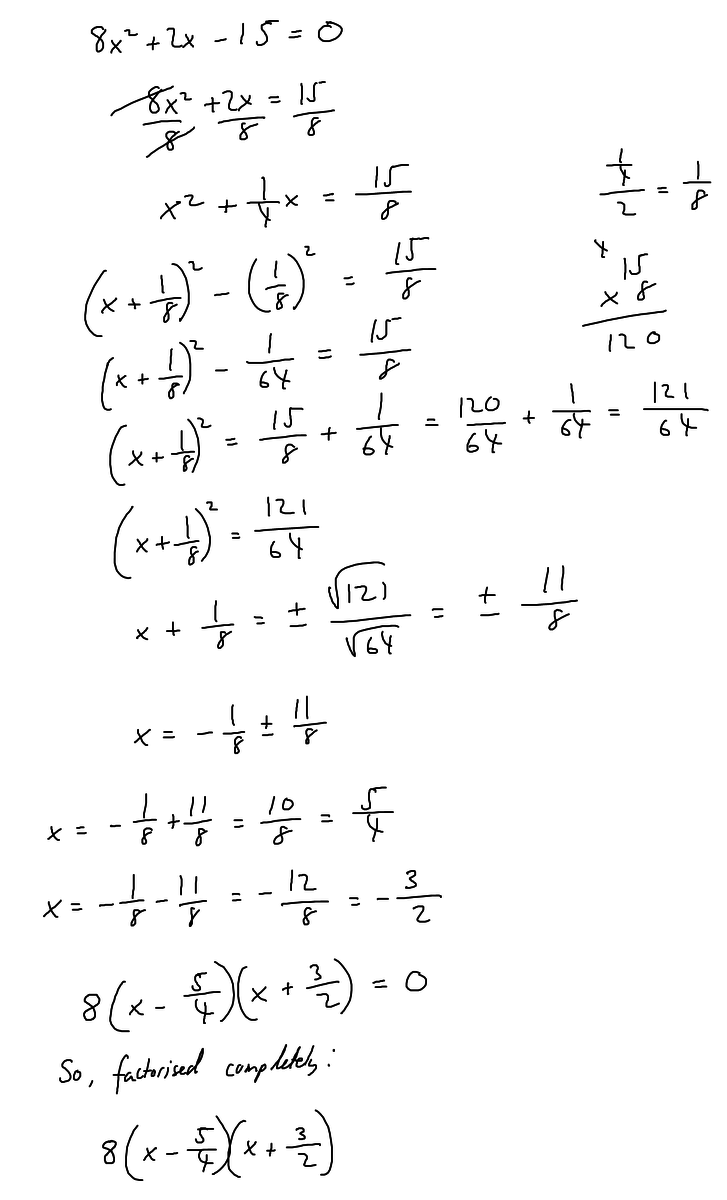 8x² + 2x - 15 = 0
8x²/8 + 2x/8 = 15/8
x² + 1/4 x = 15/8
(1/4)/2 = 1/8
(x + 1/8)² - (1/8)² = 15/8
4
15
x 8
120
(x + 1/8)² - 1/64 = 15/8
(x + 1/8)² = 15/8 + 1/64 = 120/64 + 1/64 = 121/64
(x + 1/8)² = 121/64
x + 1/8 = ± √121/√64 = ± 11/8
x = - 1/8 ± 11/8
x = - 1/8 + 11/8 = 10/8 = 5/4
x = - 1/8 - 11/8 = - 12/8 = - 3/2
8(x - 5/4)(x + 3/2) = 0
So, factorised completely:
8(x - 5/4)(x + 3/2)